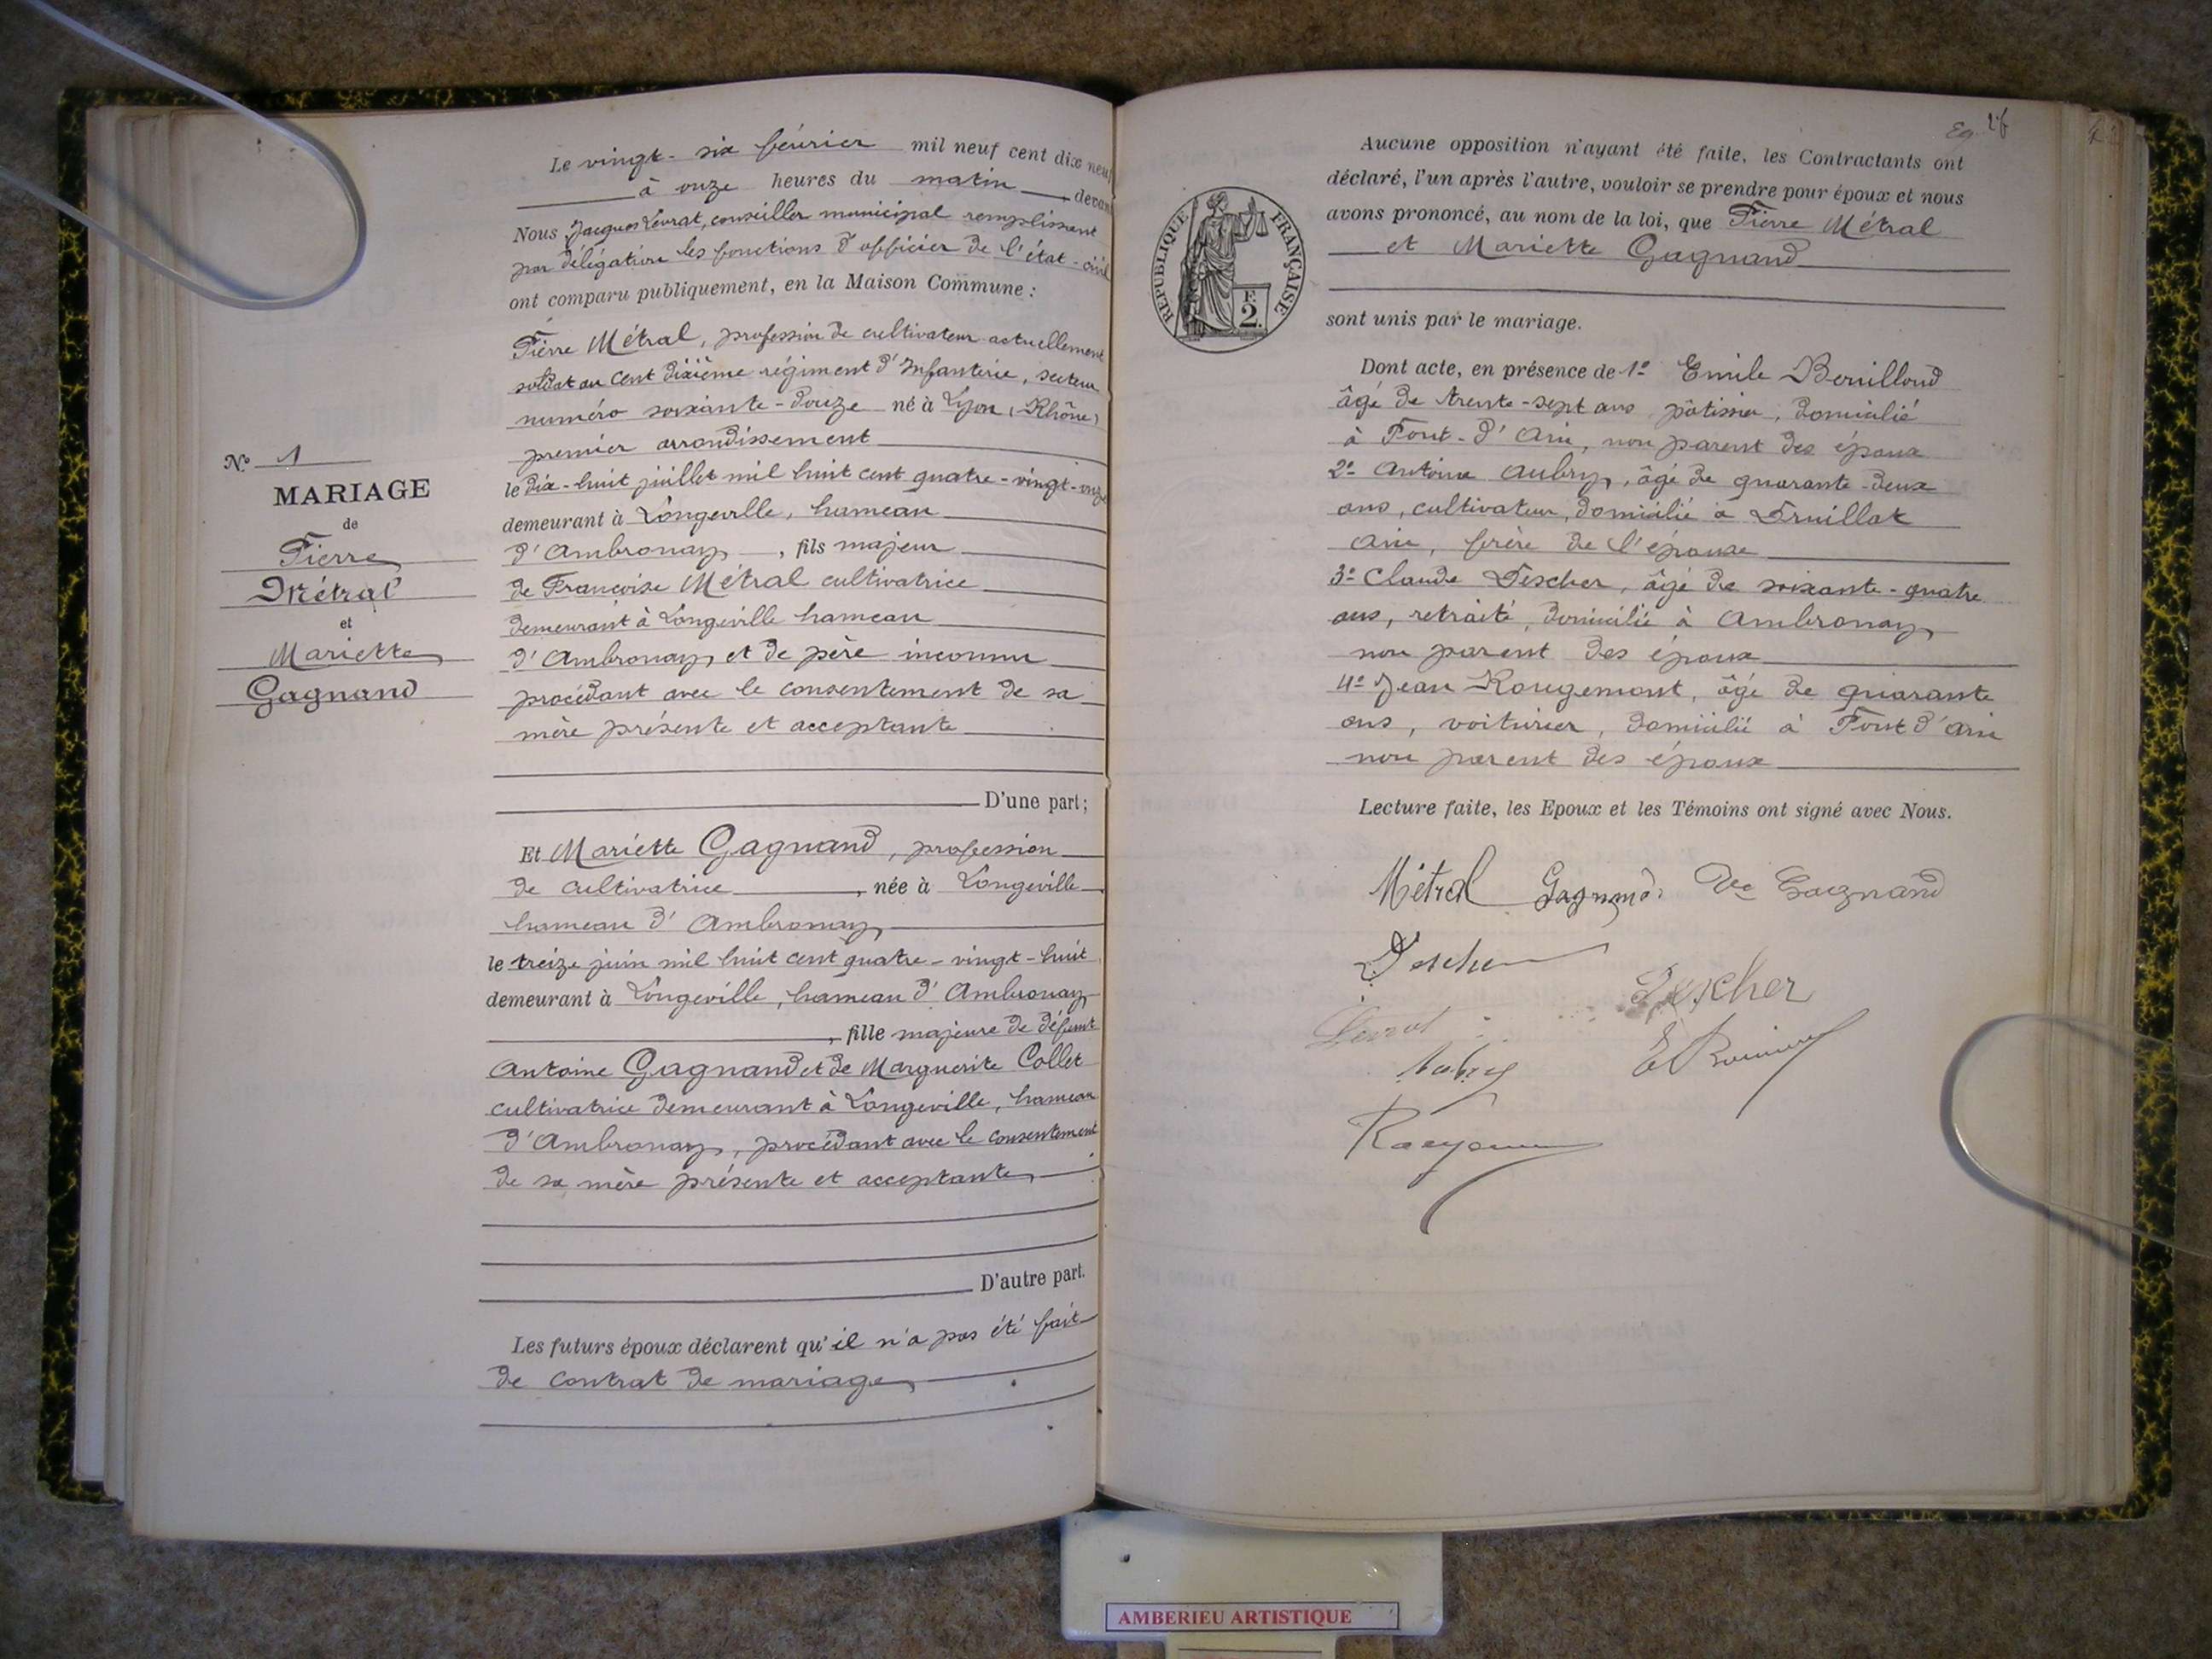 N.° 1
MARIAGE
de
Pierre
Métral
et
Mariette
Gagnand
Le vingt-six février mil neuf cent dix neuf
à onze heures du matin, devant
Nous Jacques Levrat, conseiller municipal remplissant
par délégation les fonctions d'officier de l'état-civil
ont comparu publiquement, en la Maison Commune :
Pierre Métral, profession de cultivateur actuellement
soldat au cent dixième régiment d'Infanterie, secteur
numéro soixante-douze né à Lyon (Rhône)
premier arrondissement
le dix-huit juillet mil huit cent quatre-vingt-onze
demeurant à Longeville, hameau
d'Ambronay, fils majeur
de Françoise Métral cultivatrice
demeurant à Longeville hameau
d'Ambronay et de père inconnu
procédant avec le consentement de sa
mère présente et acceptante
D'une part ;
Et Mariette Gagnand, profession
de cultivatrice, née à Longeville
hameau d'Ambronay
le treize juin mil huit cent quatre-vingt-huit
demeurant à Longeville, hameau d'Ambronay
, fille majeure de défunt
Antoine Gagnand et de Marguerite Collet
cultivatrice demeurant à Longeville, hameau
d'Ambronay, procédant avec le consentement
de sa mère présente et acceptante
D'autre part.
Les futurs époux déclarent qu'il n'a pas été fait
de contrat de mariage
REPUBLIQUE FRANÇAISE
F.
2.
Aucune opposition n'ayant été faite, les Contractants ont
déclaré, l'un après l'autre, vouloir se prendre pour époux et nous
avons prononcé, au nom de la loi, que Pierre Métral
et Mariette Gagnand
sont unis par le mariage.
Dont acte, en présence de 1° Emile
âgé de trente-sept ans pâtissier, domicilié
à Pont-d'Ain, non parent des époux
2° Antoine Aubry, âgé de quarante-deux
ans, cultivateur, domicilié à Druillat
Ain, frère de l'épouse
3° Claude Descher, âgé de soixante-quatre
ans, retraité, domicilié à Ambronay
non parent des époux
4° Jean Rougemont, âgé de quarante
ans, voiturier, domicilié à Pont d'Ain
non parent des époux
Lecture faite, les Epoux et les Témoins ont signé avec Nous.
Métral Gagnand Vve Gagnand
Descher
Descher
Levrat
Aubry
AMBERIEU ARTISTIQUE